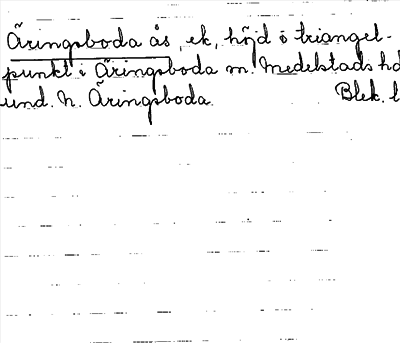 Äringsboda ås, ek, höjd o triangel-
punkt i Äringsboda m. Medelstads hd
und. N. Äringsboda. Blek. l